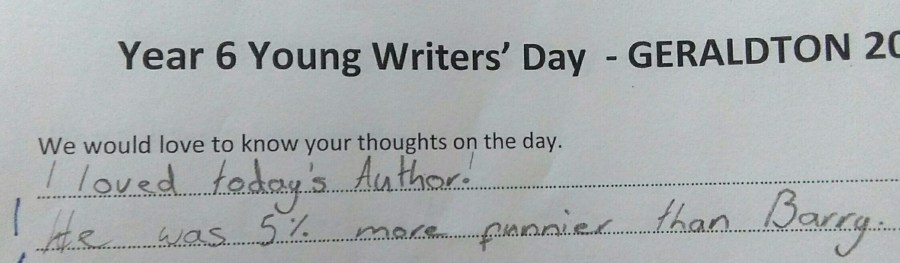 Year 6 Young Writers' Day - GERALDTON 20
We would love to know your thoughts on the day.
I loved today's Author!
He was 5% more funnier than Barry.